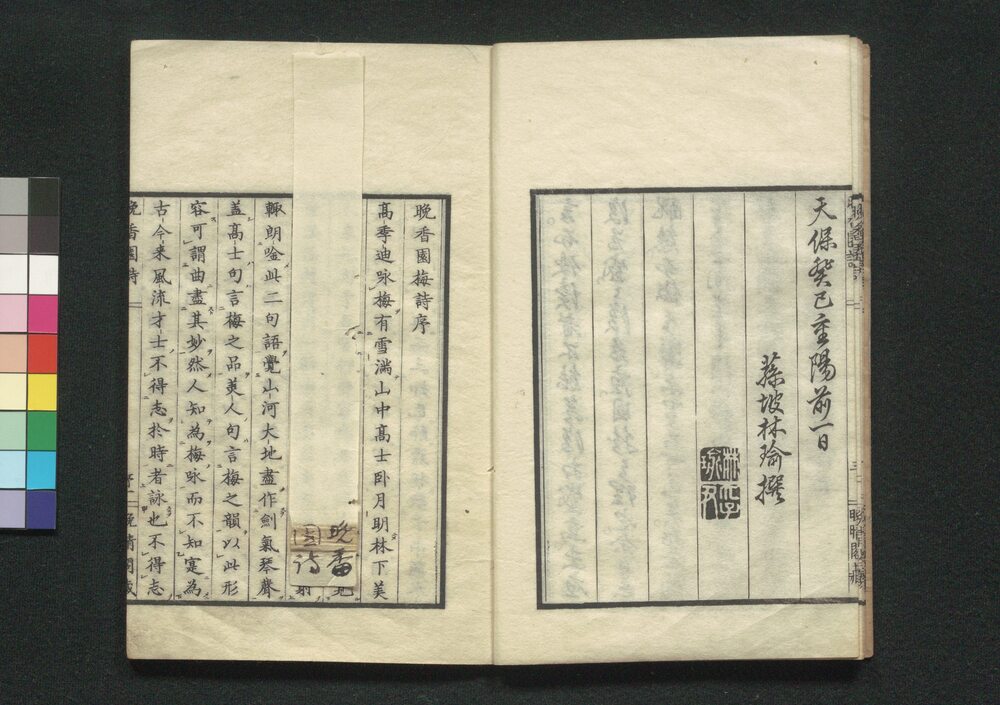 天保癸巳重陽前一日
蓀坡林瑜撰
晩香園梅詩序
高季迪咏梅有雪満山中高士卧月明林下美
輙朗唫此二句語覺山河大地盡作劍氣琴聲
盖高士句言梅之品美人句言梅之韻以此形
容可謂曲盡其妙然人知為梅咏而不知寔為
古今来風流才士不得志於時者詠也不得志
晩香園詩
序一
晩晴閣藏
晩香
詩